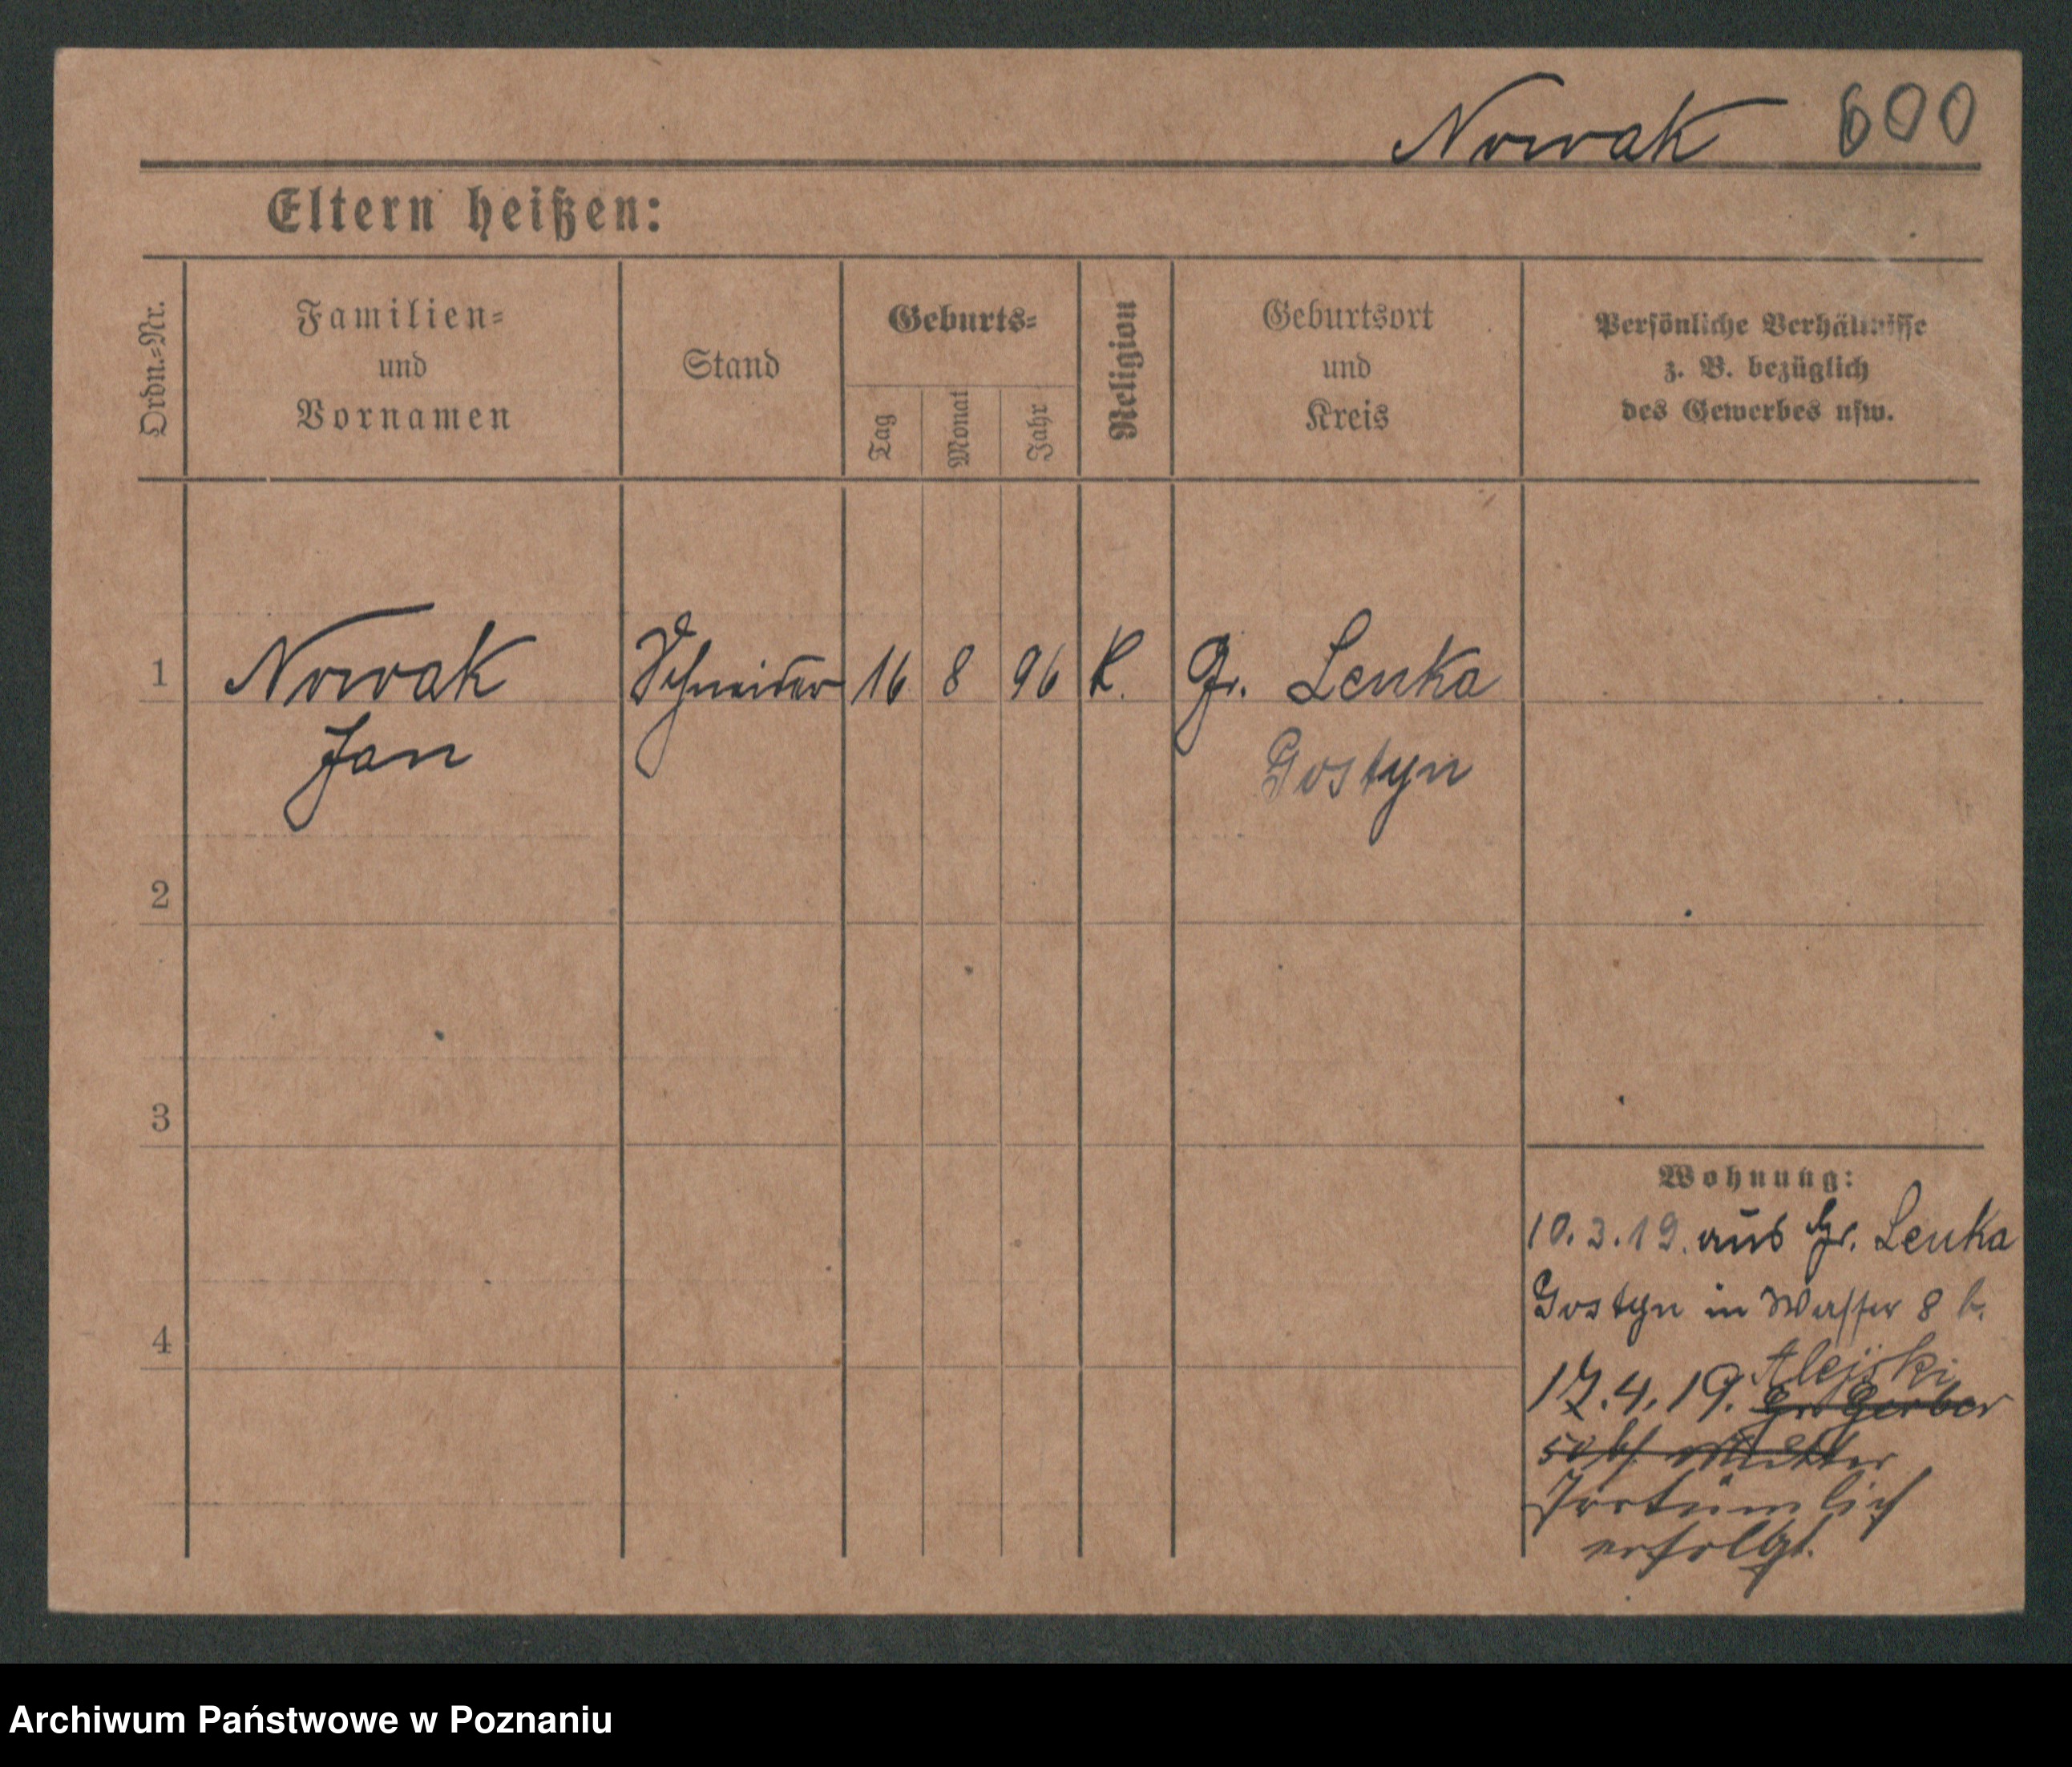 Nowak 600
Eltern heißen:
Ordn.=Nr.
Familien=
und
Vornamen
Stand
Geburts=
Tag
Monat
Jahr
Religion
Geburtsort
und
Kreis
Persönliche Verhältnisse
z. B. bezüglich
des Gewerbes usw.
1 Nowak Schneider 16 8 96 K. Gr. Lenka
Jan Gostyn
2
3
4
Wohnung:
10.3.19. aus Gr. Lenka
Gostyn in Wasser 8 b.
Alejski
17.4.19. Gr Gerber
50 b/ Mutter
Irrtümlich
erfolgt.
Archiwum Państwowe w Poznaniu